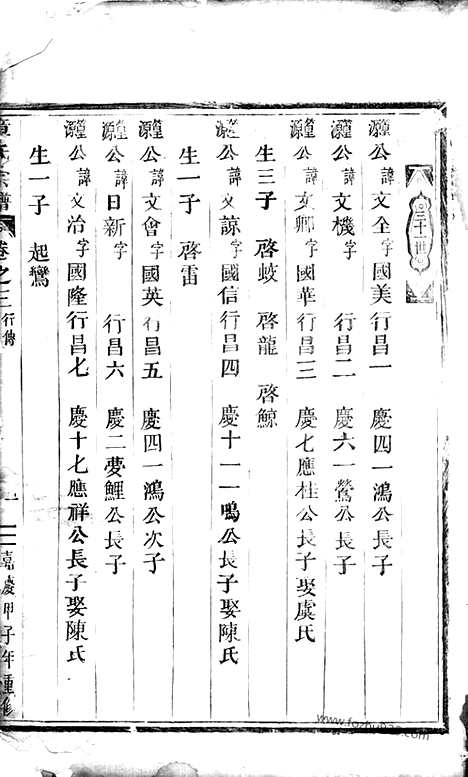 三十一世
瀍公諱文全字國美行昌一 慶四一鴻公長子
瀍公諱文機字 行昌二 慶六一鶯公長子
瀍公諱文卿字國華行昌三 慶七應桂公長子娶虞氏
生三子 啓蛟 啓龍 啓鯨
瀍公諱文諒字國信行昌四 慶十一一鳴公長子娶陳氏
生一子 啓雷
瀍公諱文會字國英行昌五 慶四一鴻公次子
瀍公諱日新字 行昌六 慶二夢鯉公長子
瀍公諱文治字國隆行昌七 慶十七應祥公長子娶陳氏
生一子 起鸞
氏宗譜 卷之三 行傳 一 嘉慶甲子年重修